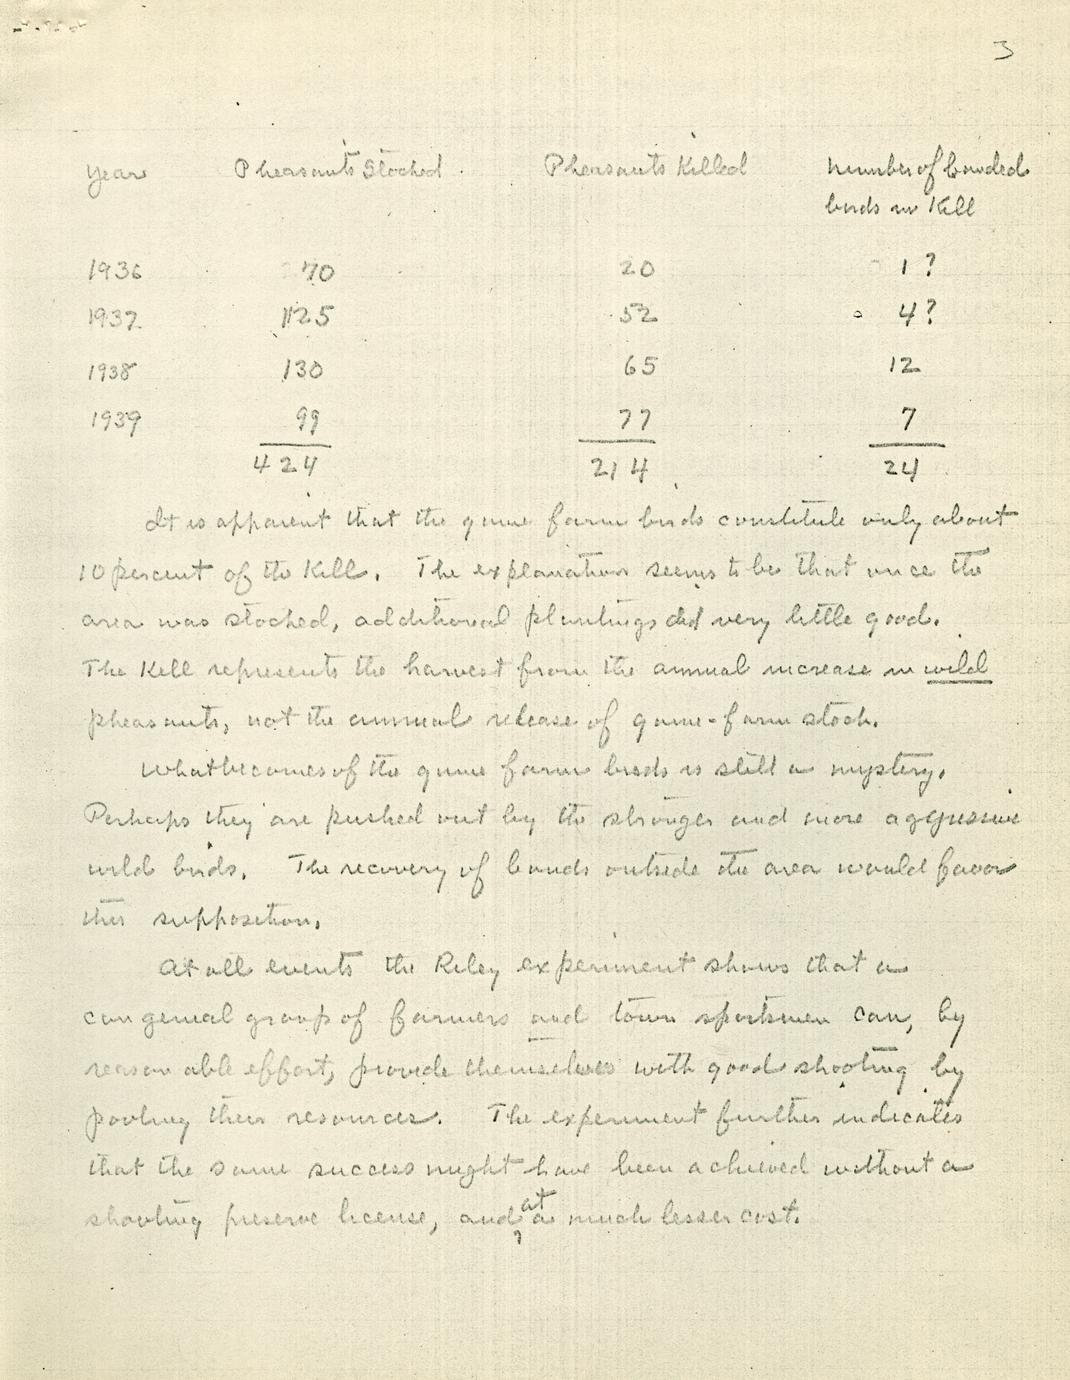 3
Year Pheasants Stocked Pheasants Killed Number of banded
birds in Kill
1936 70 20 1?
1937 125 52 4?
1938 130 65 12
1939 99 77 7
424 214 24
It is apparent that the game farm birds constitute only about
10 percent of the Kill. The explanation seems to be that once the
area was stocked, additional plantings did very little good.
The Kill represents the harvest from the annual increase in wild
pheasants, not the annual release of game-farm stock.
What becomes of the game farm birds is still a mystery.
Perhaps they are pushed out by the stronger and more aggressive
wild birds. The recovery of bands outside the area would favor
this supposition.
At all events the Riley experiment shows that a
congenial group of farmers and town sportsmen can, by
reasonable effort, provide themselves with good shooting by
pooling their resources. The experiment further indicates
that the same success might have been achieved without a
shooting preserve license, and at a much lesser cost.